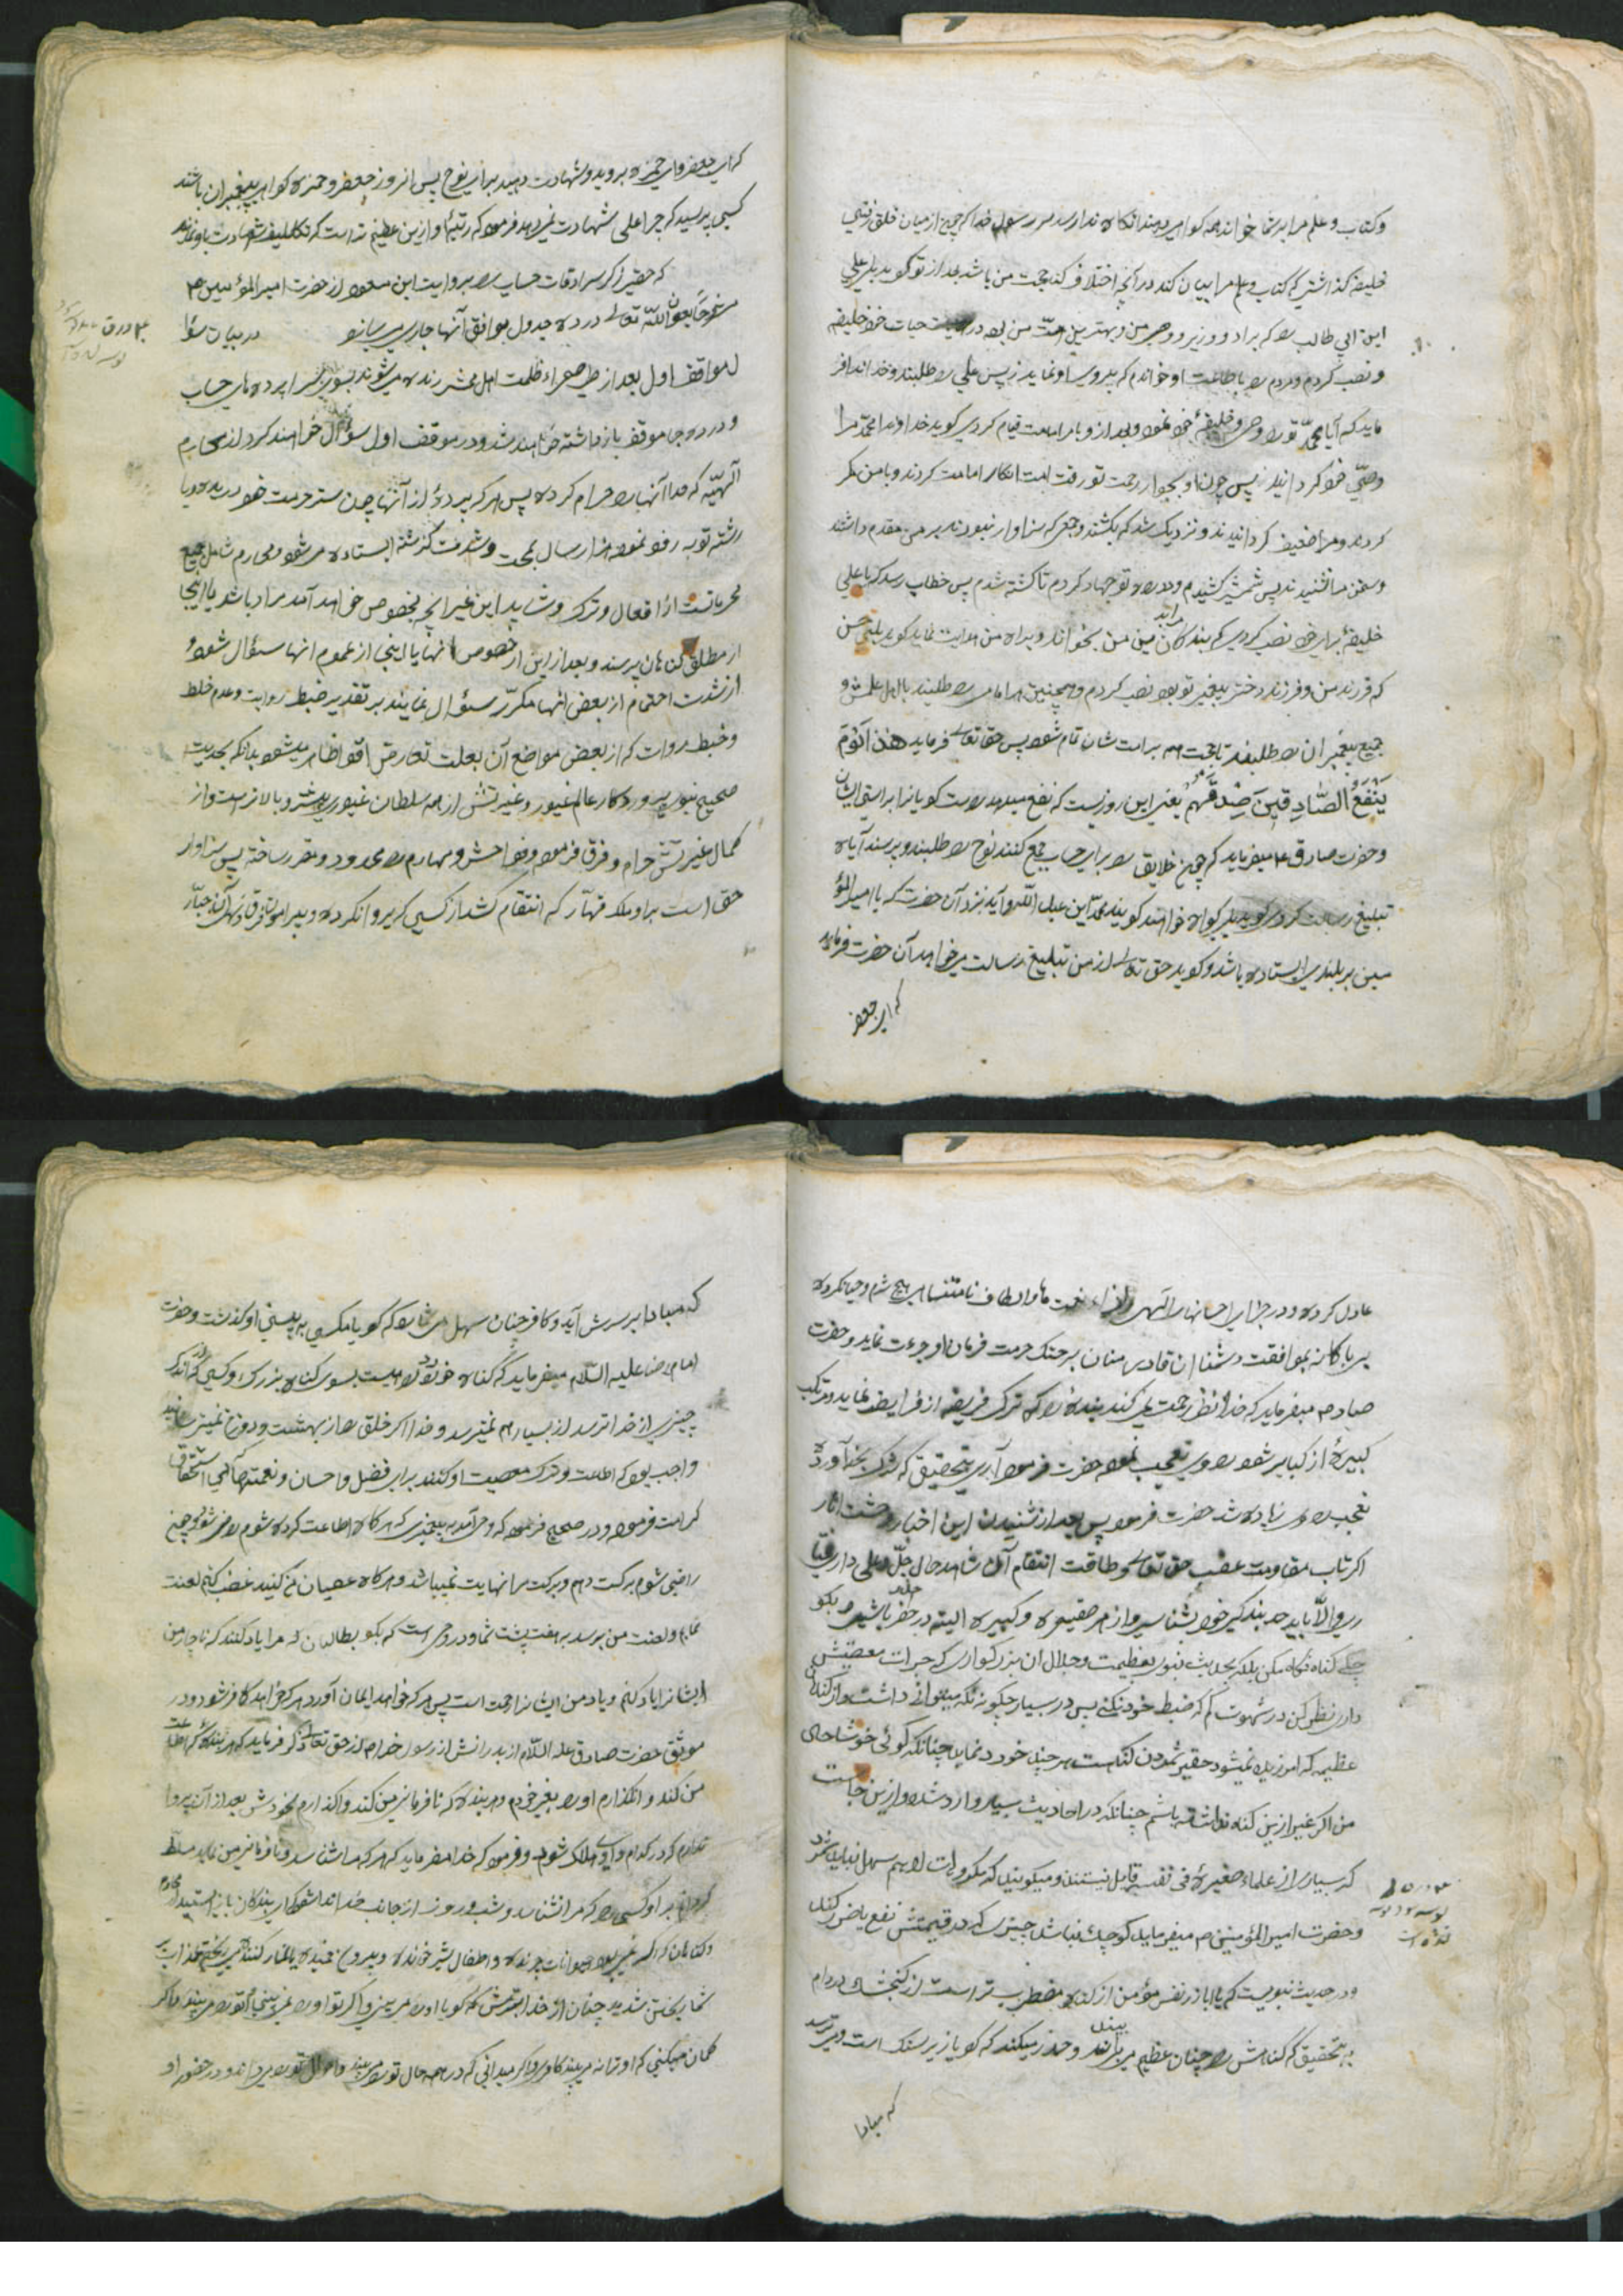 و کتاب و علم مرا بر شما خواند همه گواهی دهند انگاه ندا رسد بر رسول خدا که چون از میان خلق رفتی
خلیفه گذاشتی که کتاب و علم مرا بیان کند در آنچه اختلاف کنند حجت من باشد بعد از تو گوید بلی علی
ابن ابی طالب را که برادر و وزیر و وصی من و بهترین امت من بود در حیات خود خلیفه
و نصب کردم و مردم را باطاعت او خواندم که پیروی او نمایند پس علی را طلبند و خداوند افر
ماید که آیا محمد تو را وصی و خلیفه خود نمود و بعد از او بامر امامت قیام کردی گوید خداوندا محمد مرا
وصی خود گردانید پس چون او بجوار رحمت تو رفت امت انکار امامت کردند و با من مکر
کردند و مرا ضعیف گردانیدند و نزدیک شد که بکشند و جمعی که سزاوار نبودند بر من مقدم داشتند
و سخن مرا نشنیدند پس شمشیر کشیدم و در راه تو جهاد کردم تا کشته شدم پس خطاب رسد که یا علی
خلیفه برای خود نصب کردی که بندگان مرا بدین من بخواند و براه من هدایت نماید گوید بلی حسن
که فرزند من و فرزند دختر پیغمبر تو بود نصب کردم و همچنین هر امامی را طلبند با اهل علمش و
جمیع پیغمبران را طلبند تا حجت هم بر امت شان تمام شود پس حقتعالی فرماید هذا یَوْمُ
یَنْفَعُ الصَّادِقِینَ صِدْقُهُمْ یعنی این روزیست که نفع میدهد راست گویانرا براستی ایشان
و حضرت صادق ع میفرماید که چون خلایق را برای حساب جمع کنند نوح را طلبند و پرسند آیا
تبلیغ رسالت کردی گوید بلی گواه خواهند گوید محمد ابن عبد الله و آید نزد آن حضرت که با امیرالمؤ
منین بر بلندی ایستاده باشد و گوید حق تعالی از من تبلیغ رسالت میخواهد آن حضرت فرماید
که ای جعفر
که ای جعفر و ای حمزه بروید و شهادت دهید برای نوح پس انروز جعفر و حمزه گواه پیغمبران باشند
کسی پرسید که چرا علی شهادت نمیدهد فرمود که رتبه او ازین عظیم تر است که تکلیف شهادت باو نمایند
که حقیر ذکر سرادقات حساب را بروایت ابن مسعود از حضرت امیر المؤمنین ع
مشروحاً بعون الله تعالی در ده جدول موافق آنها جاری میسازد در بیان سؤا
ل مواقف اول بعد از طی صحراء ظلمت اهل محشر رنده میشوند بسوی سراپرده های حساب
و در ده جا موقف بازداشته خواهند شد و در موقف اول سؤال خواهند کرد از محارم
الهیه که خدا آنها را حرام کرده پس هر که پرده از آنها چون ستر حرمت خود دریده و یا
رشته توبه رفو نموده هزار سال بمحنت و شدت گذشته ایستاده میشود و محارم شامل جمیع
محرماتست از افعال و ترک و شاید این غیر آنچه بخصوص خواهد آمد مراد باشد یا اینجا
از مطلق گناهان پرسند و بعد از این از خصوص آنها یا اینجا از عموم انها سؤال شود و
از شدت اهتمام از بعض انها مکرّر سئوال نمایند بر تقدیر ضبط روایت و عدم خلط
و خبط روات که از بعض مواضع آن بعلت تعارض اقوا ظاهر میشود بدانکه بحدیث
صحیح نبوی پروردگار عالم غیور و غیرتش از همه سلطان غیوری بیشتر و بالاتر است و از
کمال غیرتش حرام و فرق فرمود و فواحش و محارم را محدود و مقرر ساخته پس سزاوار
حق است بر او ملک قهّار که انتقام کشد از کسی که پروا نکرده و پیرامون
عادل کرده و در جزای احسانهای الهی و ازاء نعمت ها و الطاف نامتناهی هیچ شرم و حیا نکرده
بی باکانه بموافقت دشمنان قادر منان بر هتک حرمت فرمان او جرءت نماید و حضرت
صادق ع میفرماید که خدا نظر رحمت نمی کند بنده را که ترک فریضه از فرایض نماید و مرتکب
کبیره از کبایر شود راوی تعجب نمود حضرت فرمود آری بتحقیق که شرک بخدا آورده
تعجب راوی زیاده شد حضرت فرمود پس بعد از شنیدن این اخبار وحشت اثار
اگر تاب مقاومت غضب حق تعالی و طاقت انتقام آن شاهد حال جلّ و علی داری
ری و الّا باید حد بندگی خود بشناسی و از هر صغیره و کبیره البته در حذر باشی و بگو
چکنم گناه نگاه مکن بلکه بحدیث نبوی بعظمت و جلال ان بزرگواری که جرات معصیتش
داری نظر کن در شهوت کم که ضبط خود نکنی پس در بسیار چگونه نگه میتوانی داشت و از گناهان
عظیمه که امرزیده نمیشود حقیر شمردن گناهست هر چند خورد نماید چنانکه گوئی خوشا حال
من اگر غیر ازین گناه نداشته باشم چنانکه در احادیث بسیار وارد شده و ازین جاست
که بسیاری از علماء صغیره فی نفسه قایل نیستند و میگویند که مکروهات را هم سهل نباید شمرد
و حضرت امیر المؤمنین ع میفرماید کوچک نباشد چیزی که در قیمتش نفع یا ضرر کند
و در حدیث نبویست که یا اباذر نفس مؤمن از گناه مضطرب تر است از گنجشک در دام
بتحقیق که گناهش را چنان عظیم میبیند و حذر میکند که گویا زیر سنگ است و میترسد
که مبادا
که مبادا بر سرش آید و کافر چنان سهل می شمارد که گویا مگسی بر بینی او گذشت و حضرت
امام رضا علیه السّلام میفرماید که گناه خورد راهیست بسوی گناه بزرگ و کسی که در اندک
چیزی از خدا نترسد از بسیار هم نمیترسد و خدا اگر خلق را از بهشت و دوزخ نمیترسانید
واجب بود که اطاعت و ترک معصیت او کنند برای فضل و احسان و نعمتها که بی استحقاق
کرامت فرمود و در صحیح فرمود که وحی آمد به پیغمبری که هر گاه اطاعت کرده شوم راضی شوم و چون
راضی شوم برکت دهم و برکت مرا نهایت نمیباشد و هر گاه عصیان من کنند غضب کنم لعنت
نمایم و لعنت من برسد به هفت پشت شما و در وحی است که بگو بظالمان که مرا یاد نکنند که ناچار من
ایشانرا یاد کنم و یاد من ایشانرا لعنت است پس هر که خواهد ایمان آورد هر که خواهد کافر شود و در
موثق حضرت صادق علیه السّلام از پدرانش از رسول خدا ص از حق تعالی ذکر فرماید که هر بنده که اطاعت
من کند وانگذارم او را بغیر خودم و هر بنده که نافرمانی من کند واگذارم بخودش بعد از آن پروا
ندارم که در کدام وادی هلاک شود و فرمود که خدا میفرماید که هر که مرا شناسد و نافرمانی من نماید مسلط
گردانم بر او کسی را که مرا نشناسد و شب و روز از جانب خدا ندا شود که ای بندگان باز ایستید از محارم
و گناهان که اگر نمی بود حیوانات چرنده و اطفال شیر خورنده و پیروان خمیده
شما ریختن شدید چنان از خدا بترس که گویا او را میبینی و اگر تو او را نمی بینی او تو را میبیند و اگر
گمان میکنی که او ترا نمیبیند کافری و اگر میدانی که در همه حال تو را میبیند و احوال تو را میداند و در حضور او